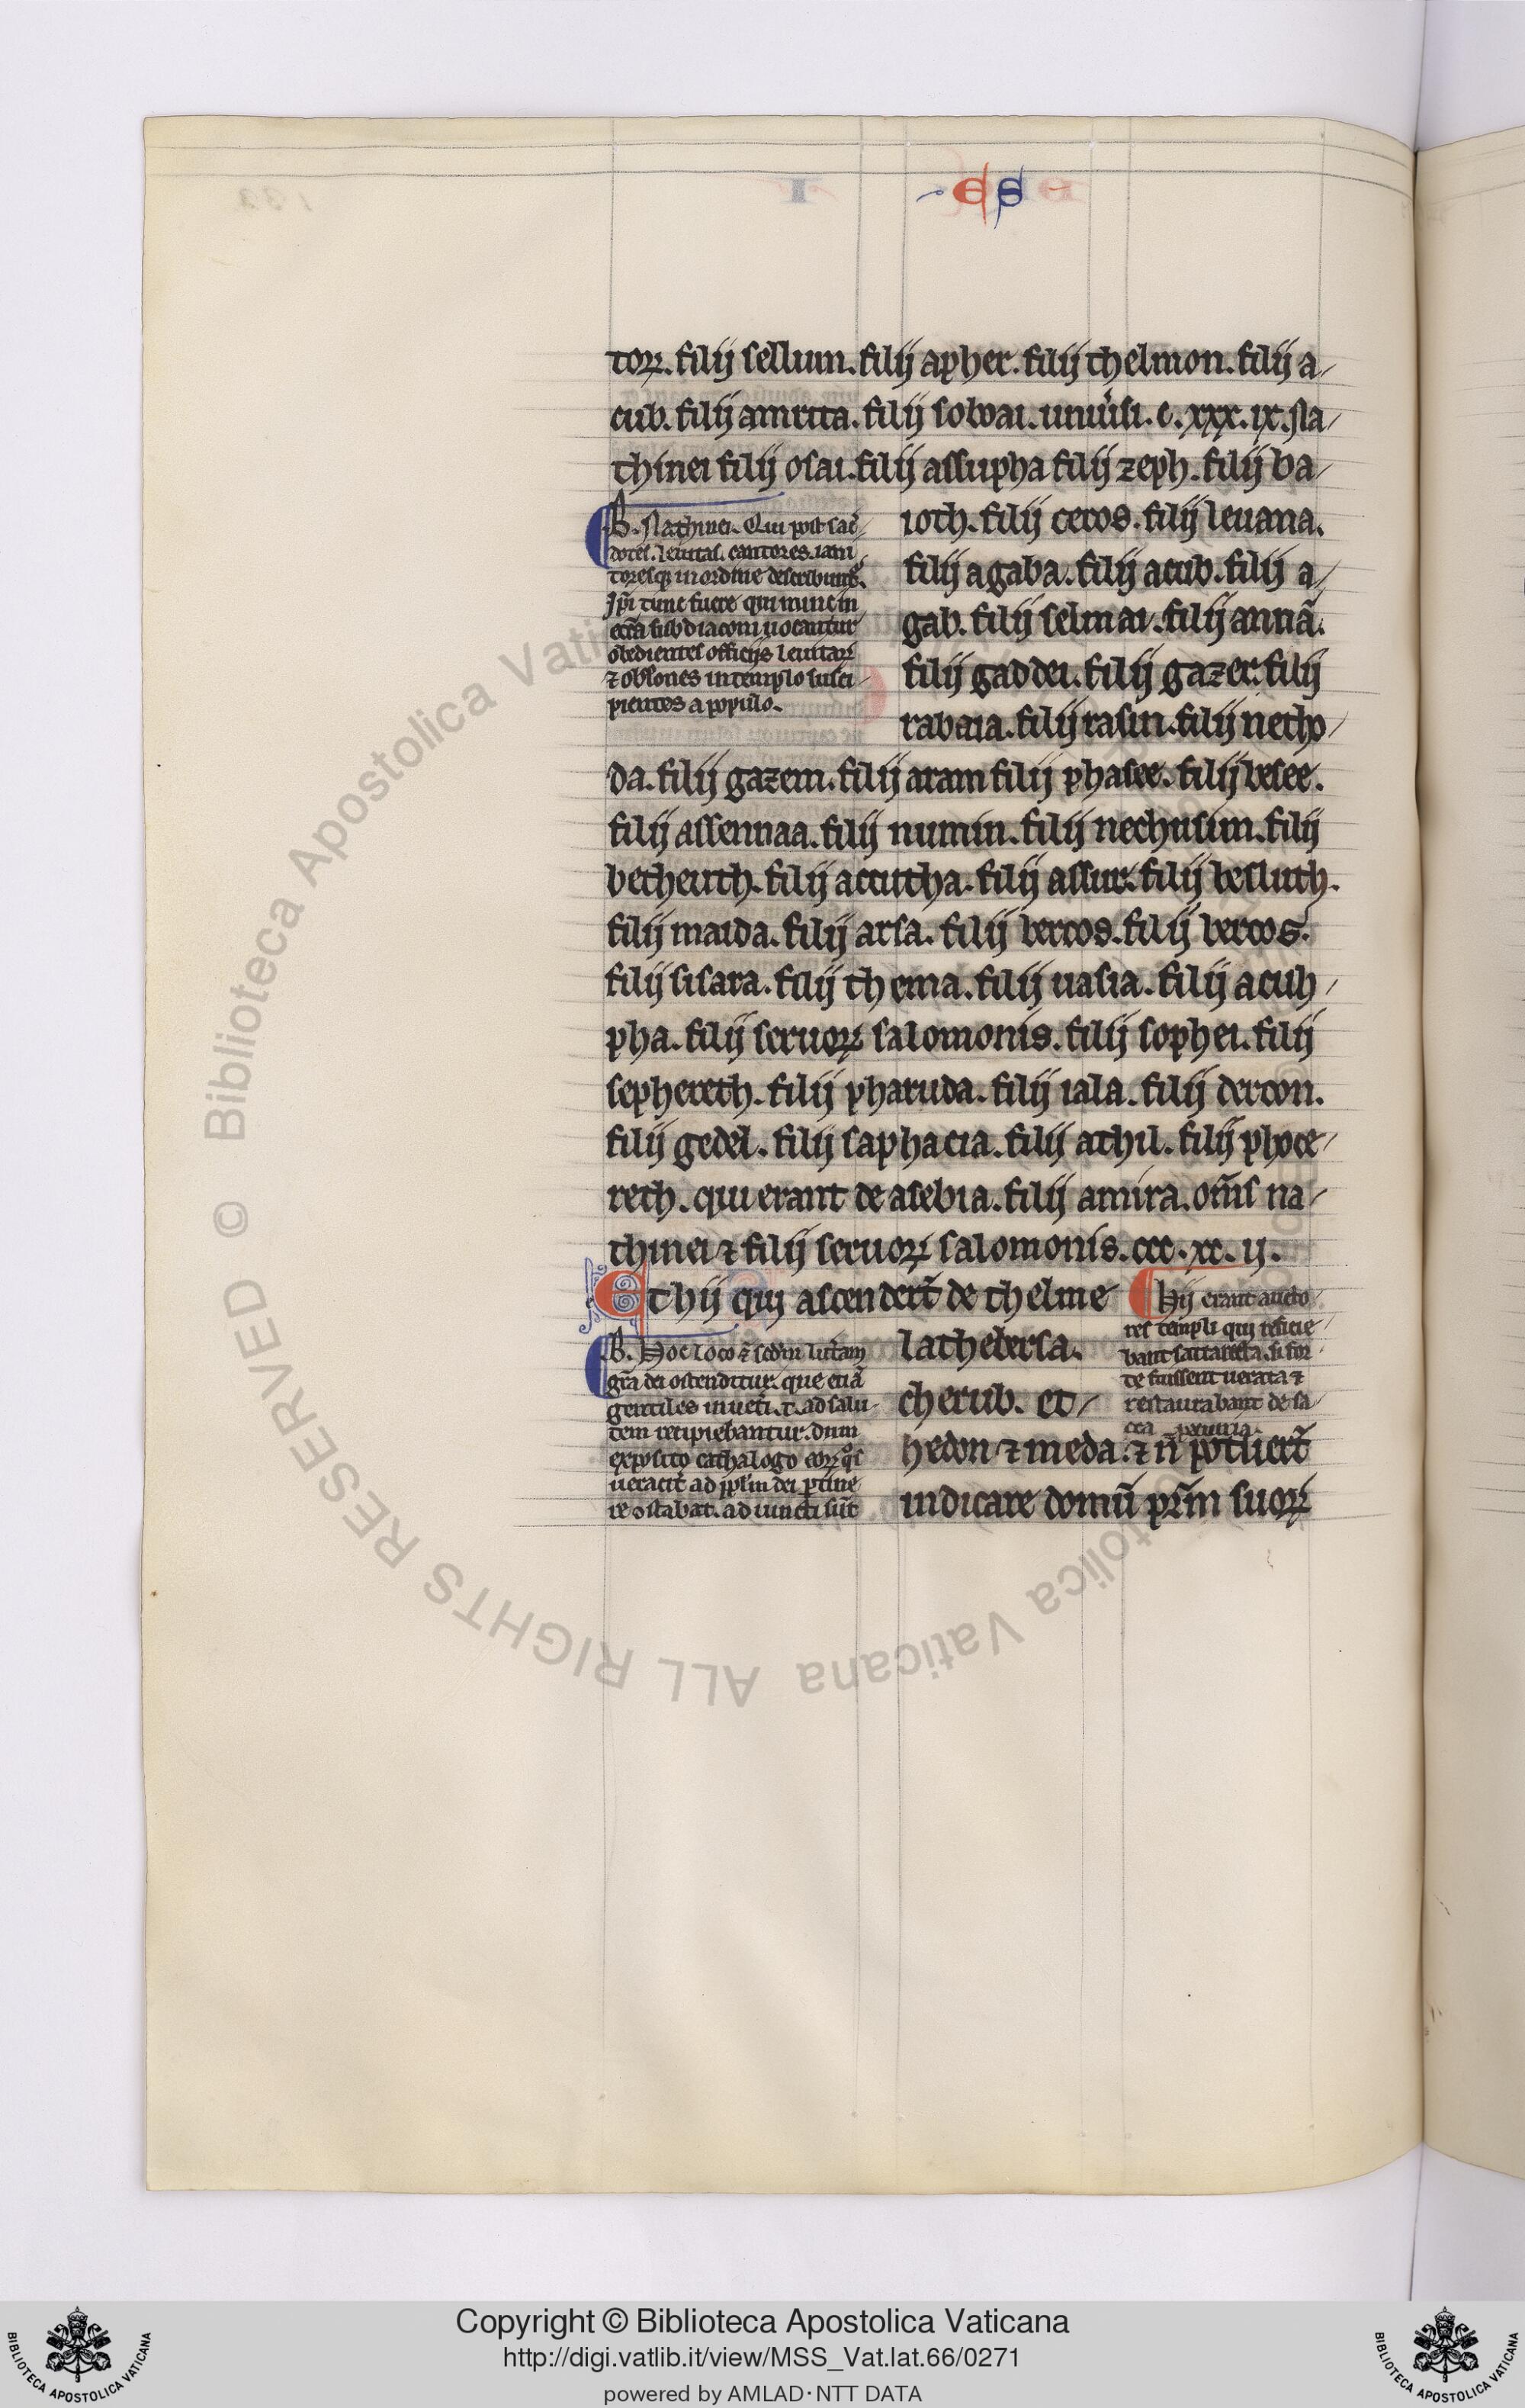 ES
toꝝ. filij sellum. filij apher. filij thelmon. filij a
cub. filij amitta. filij sobbai. uniũsi. c. xxx. ix. Na
thinei filij osai. filij assupha filij zeph. filij ba
ioth. filij ceros. filij leuana.
filij agaba. filij acub. filij a
gab. filij selmai. filij annã.
filij gaddei. filij gazer. filij
rabaia. filij rasin. filij necho
da. filij gazem. filij aram filij phasee. filij besee.
filij assennaa. filij numin. filij nechusim. filij
becheuth. filij accutha. filij assur. filij besluth.
filij maida. filij arsa. filij bercos. filij bercos.
filij sisara. filij thema. filij nasia. filij acuh
pha. filij seruoꝝ salomonis. filij sophei. filij
sephereth. filij pharuda. filij iala. filij dercon.
filij gedel. filij saphacia. filij athil. filij phoce
reth. qui erant de asebia. filij amira. om̃s na
thinei ⁊ filij seruoꝝ salomonis. ccc. xc. ij.
B. Nathinei. Qui post sac̃
dotes. leuitas. cantores. iani
toresqꝫ in ordine describunt᷑.
Ip̃i tunc fuere qui nunc in
ecc̃a subdiaconi uocantur
obedientes officijs leuitaꝝ
⁊ obl̃ones in templo susci
pientes a populo.
Et hij qui ascender̃t de thelme
lathelersa.
cherub. et
hedon ⁊ meda. ⁊ ñ potuer̃t
indicare domũ pr̃m suoꝝ
Hij erant aucto
res templi qui reficie
bant sartatecta. si for
te fuissent uetata ⁊
restaurabant de sa
cra pecunia.
B. Hoc loco ⁊ scd̃m lit̃am
gr̃a dei ostenditur. que etiã
gentiles in uet̃i. t. ad salu
tem recipiebantur. dum
exposito cathalogo eoꝝ q̊s
ueracit̃ ad ppl̃m dei ptine
re ostabat. adiuncti sũt
Copyright © Biblioteca Apostolica Vaticana
http://digi.vatlib.it/view/MSS_Vat.lat.66/0271
powered by AMLAD·NTT DATA
© Biblioteca Apostolica Vaticana ALL RIGHTS RESERVED
BIBLIOTECA APOSTOLICA VATICANA
BIBLIOTECA APOSTOLICA VATICANA